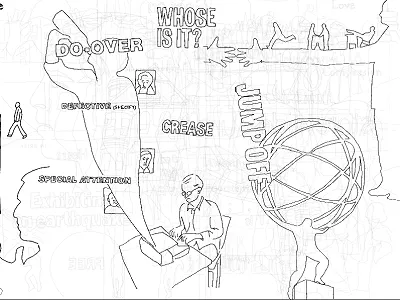 WHOSE
IS IT?
DO-OVER
DEFECTIVE (SPECIFY)
CREASE
JUMP OFF
SPECIAL ATTENTION